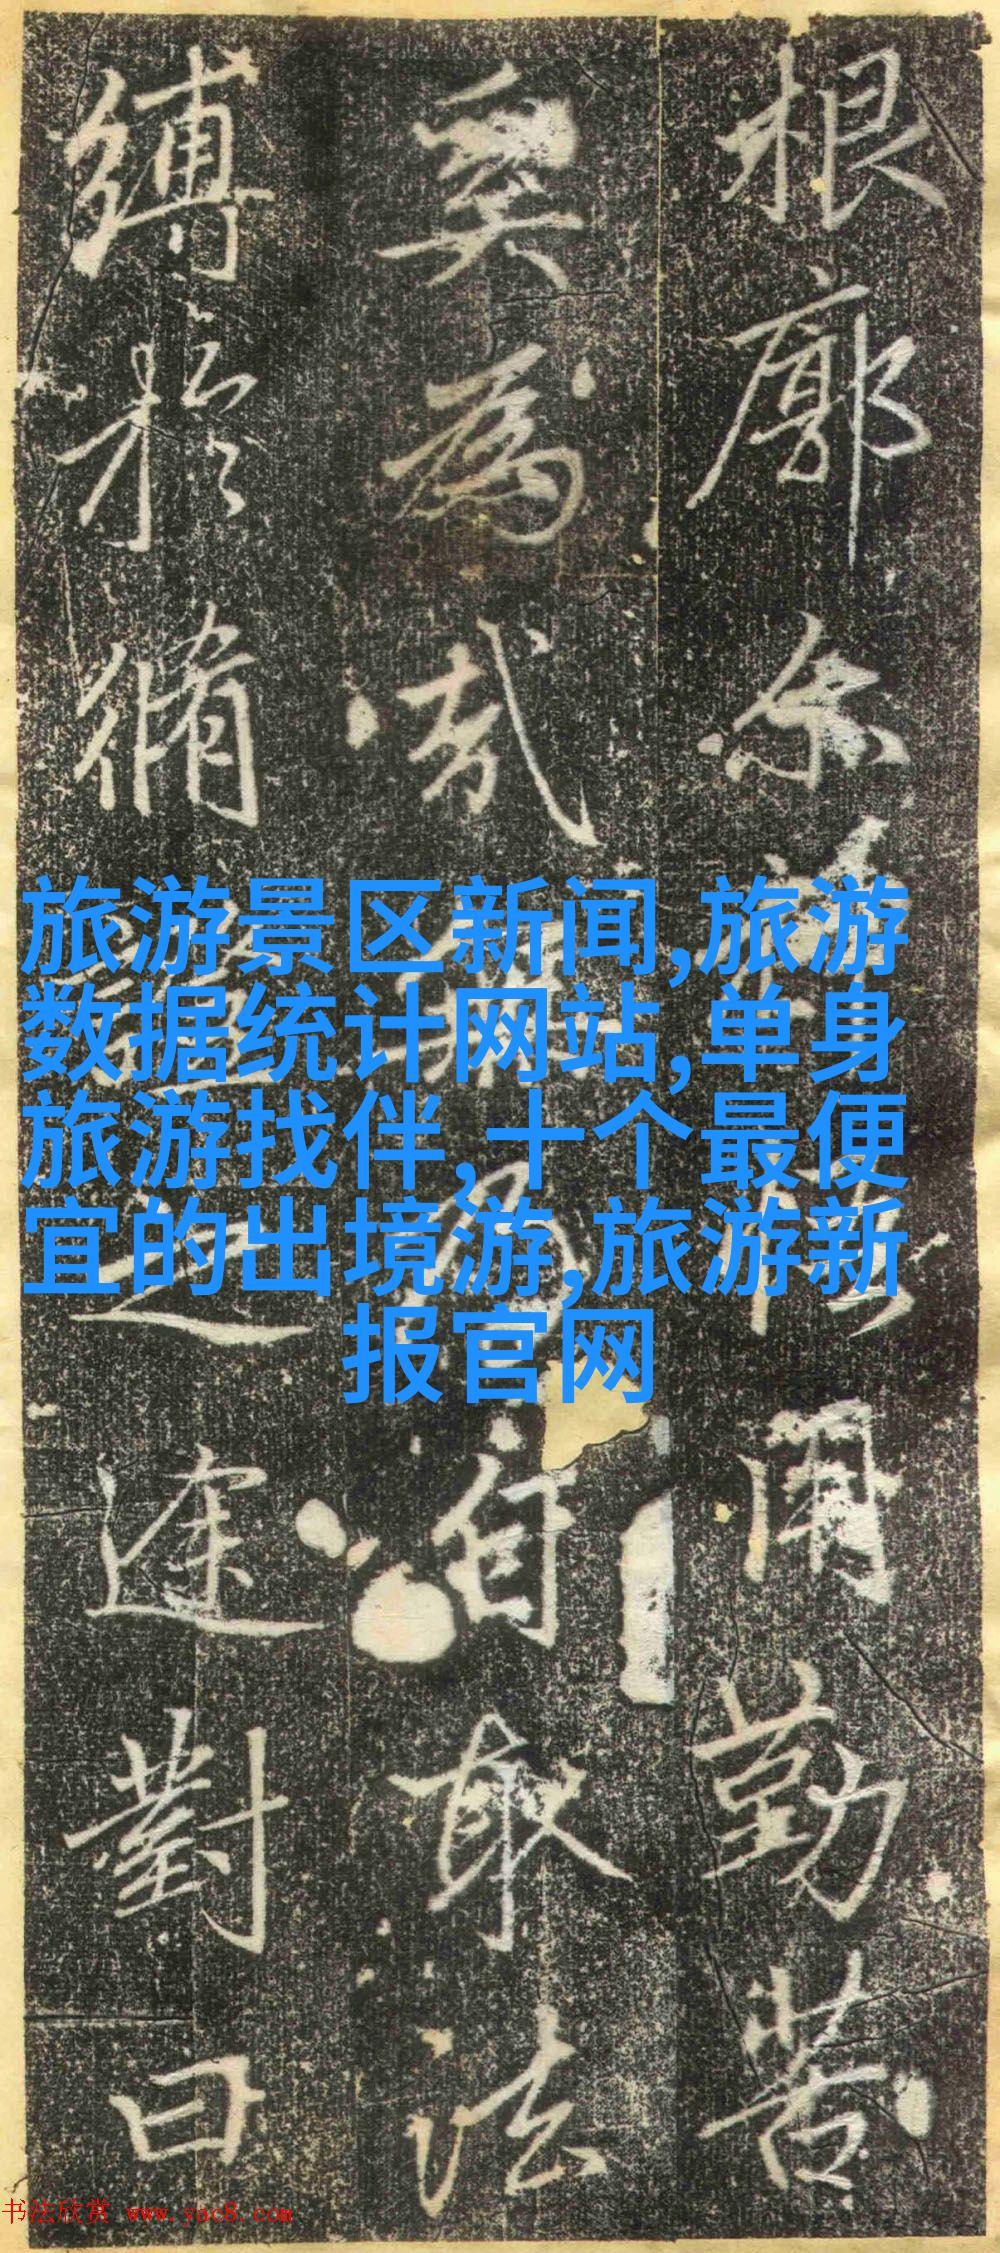 根廓尔用勤苦
奚為自取法
縛於脩證之途對曰
旅游景区新闻,旅游
数据统计网站,单身
旅游找伴,十个最便
宜的出境游,旅游新
报官网
书法欣赏 www.yac8.com